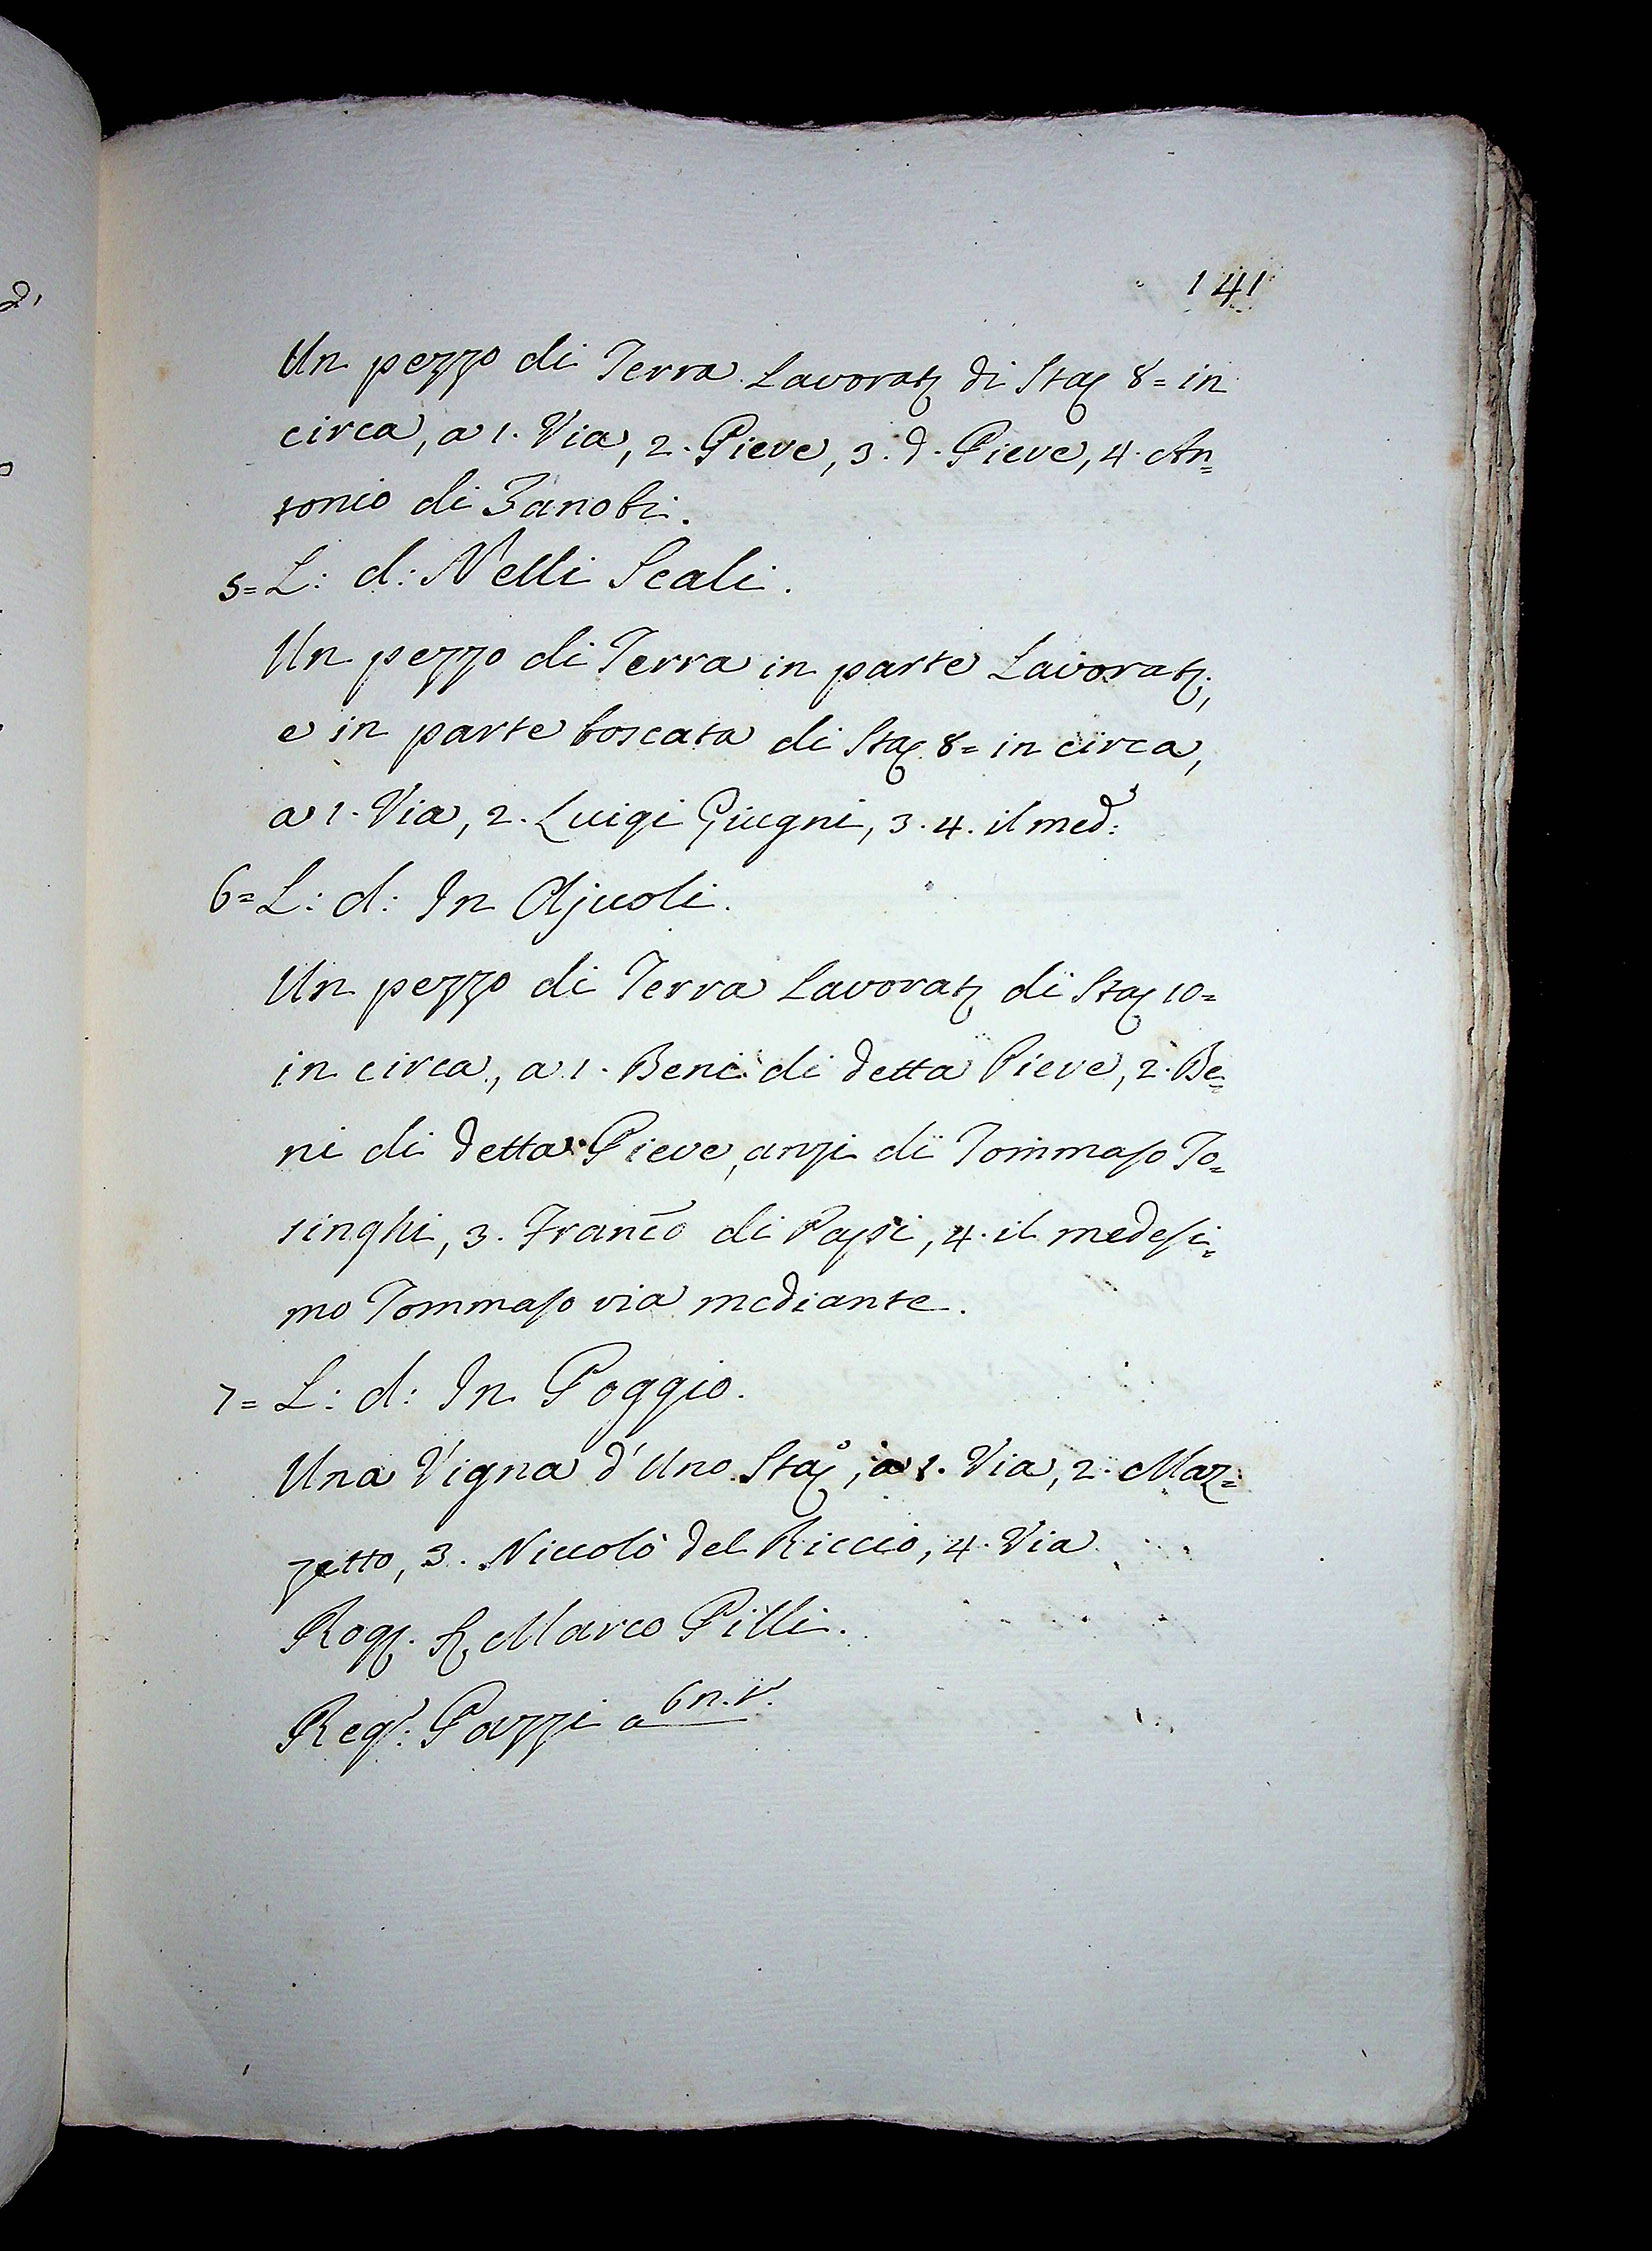 141
Un pezzo di Terra Lavorat. di Sta. 8= in
circa, a 1. Via, 2. Pieve, 3. d. Pieve, 4. An=
tonio di Zanobi.
5= L: d: Nelli Scali.
Un pezzo di Terra in parte Lavorat.,
e in parte boscata di Sta. 8= in circa,
a 1. Via, 2. Luigi Giugni, 3. 4. il med:
6= L: d: In Ajuoli.
Un pezzo di Terra Lavorat. di Sta. 10=
in circa, a 1. Beni di detta Pieve, 2. Be=
ni di detta Pieve, anzi di Tommaso To=
singhi, 3. Franco di Passi, 4. il medesi=
mo Tommaso via mediante.
7= L: d: In Poggio.
Una Vigna d'Uno Sta.°, a 1. Via, 2. Maz=
zetto, 3. Niccolò del Riccio, 4. Via
Rog. S. Marco Pilli.
Reg.° Pazzi a 6 n. v.